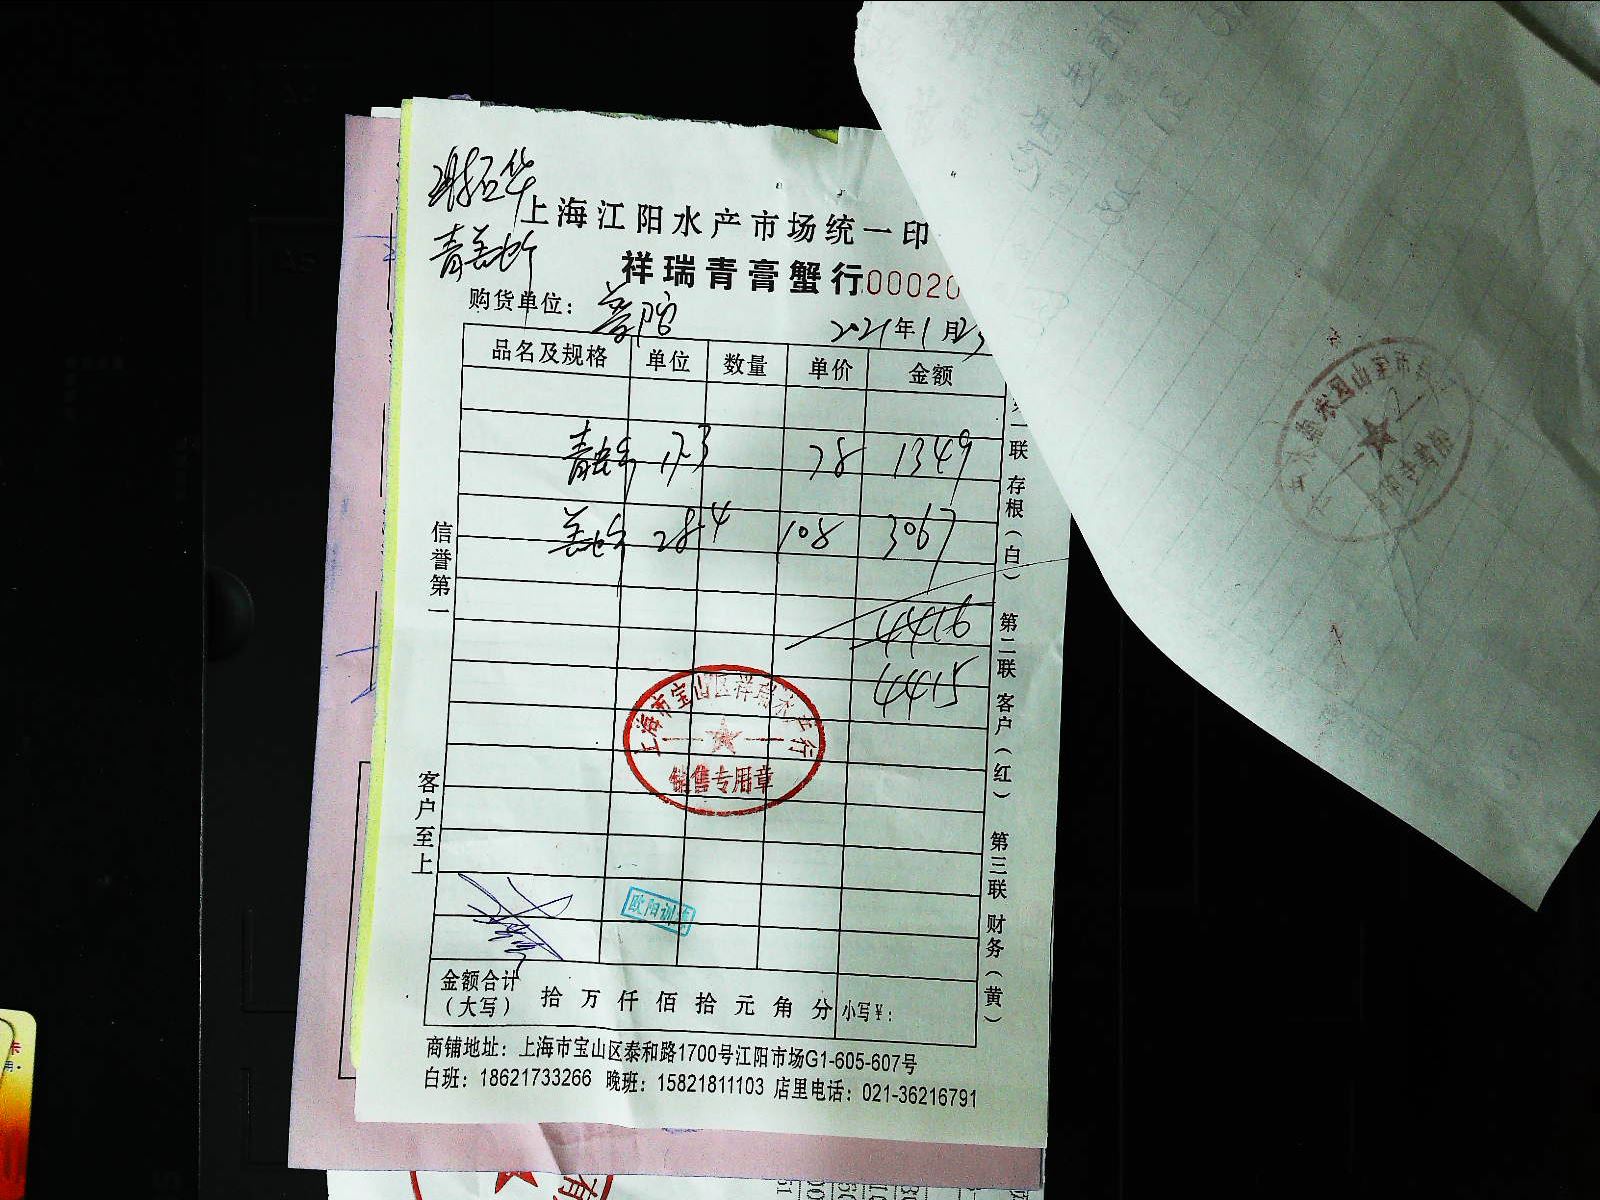 上海江阳水产市场统一印
祥瑞青膏蟹行 00020
购货单位： 普陀
2021年1月23
品名及规格 单位 数量 单价 金额
17.3 78 1349
28.4 108 3067
4416
4415
信誉第一
客户至上
联 存根（白） 第二联 客户（红） 第三联 财务（黄）
上海市宝山区祥瑞水产行
销售专用章
欧阳训
金额合计（大写） 拾 万 仟 佰 拾 元 角 分 小写¥：
商铺地址：上海市宝山区泰和路1700号江阳市场G1-605-607号
白班：18621733266 晚班：15821811103 店里电话：021-36216791